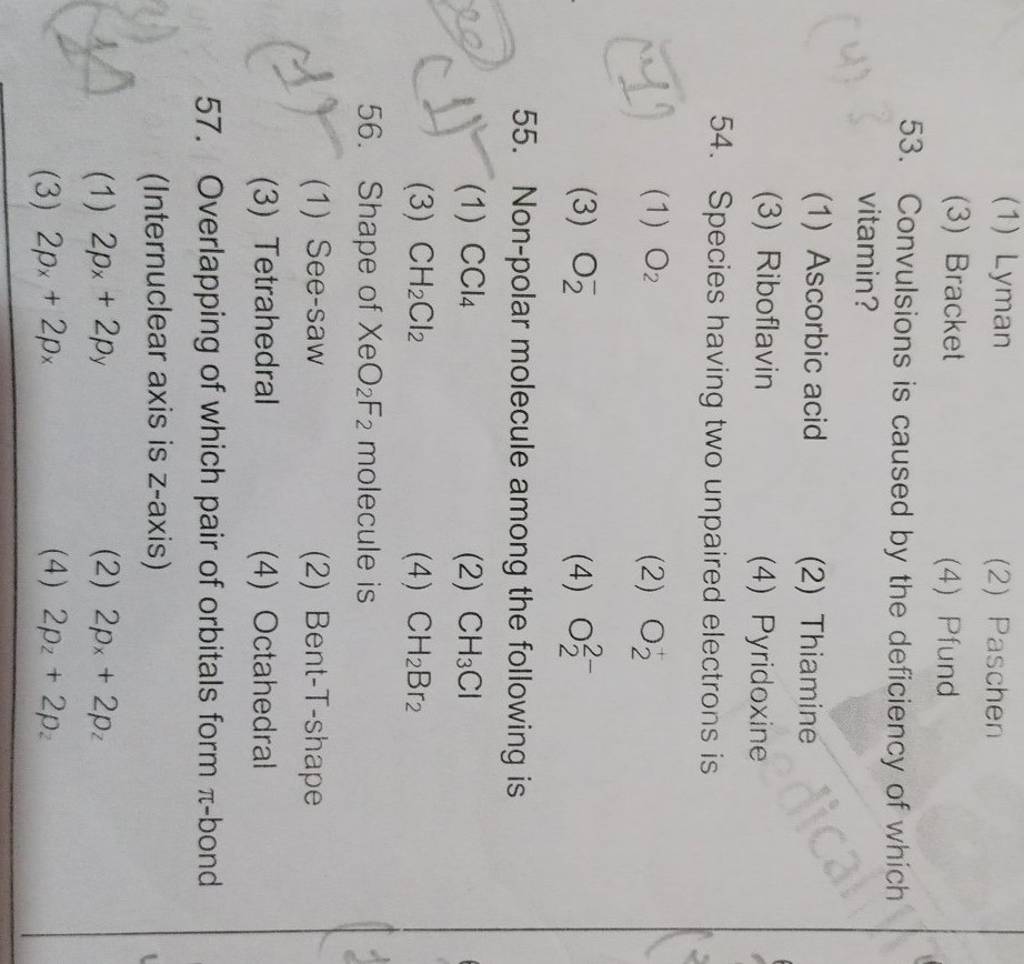 (1) Lyman (2) Paschen
(3) Bracket (4) Pfund
53. Convulsions is caused by the deficiency of which
vitamin?
(4) ?
(1) Ascorbic acid (2) Thiamine
(3) Riboflavin (4) Pyridoxine
54. Species having two unpaired electrons is
(1) O₂ (2) O₂⁺
(3) O₂⁻ (4) O₂²⁻
55. Non-polar molecule among the following is
(1)
(1) CCl₄ (2) CH₃Cl
(3) CH₂Cl₂ (4) CH₂Br₂
56. Shape of XeO₂F₂ molecule is
(1)
(1) See-saw (2) Bent-T-shape
(3) Tetrahedral (4) Octahedral
57. Overlapping of which pair of orbitals form π-bond
(Internuclear axis is z-axis)
(1) 2pₓ + 2pᵧ (2) 2pₓ + 2p_z
(3) 2pₓ + 2pₓ (4) 2p_z + 2p_z